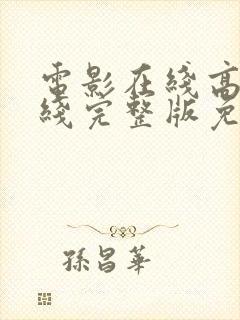 電影在綫高
綫完整版免
孫昌華